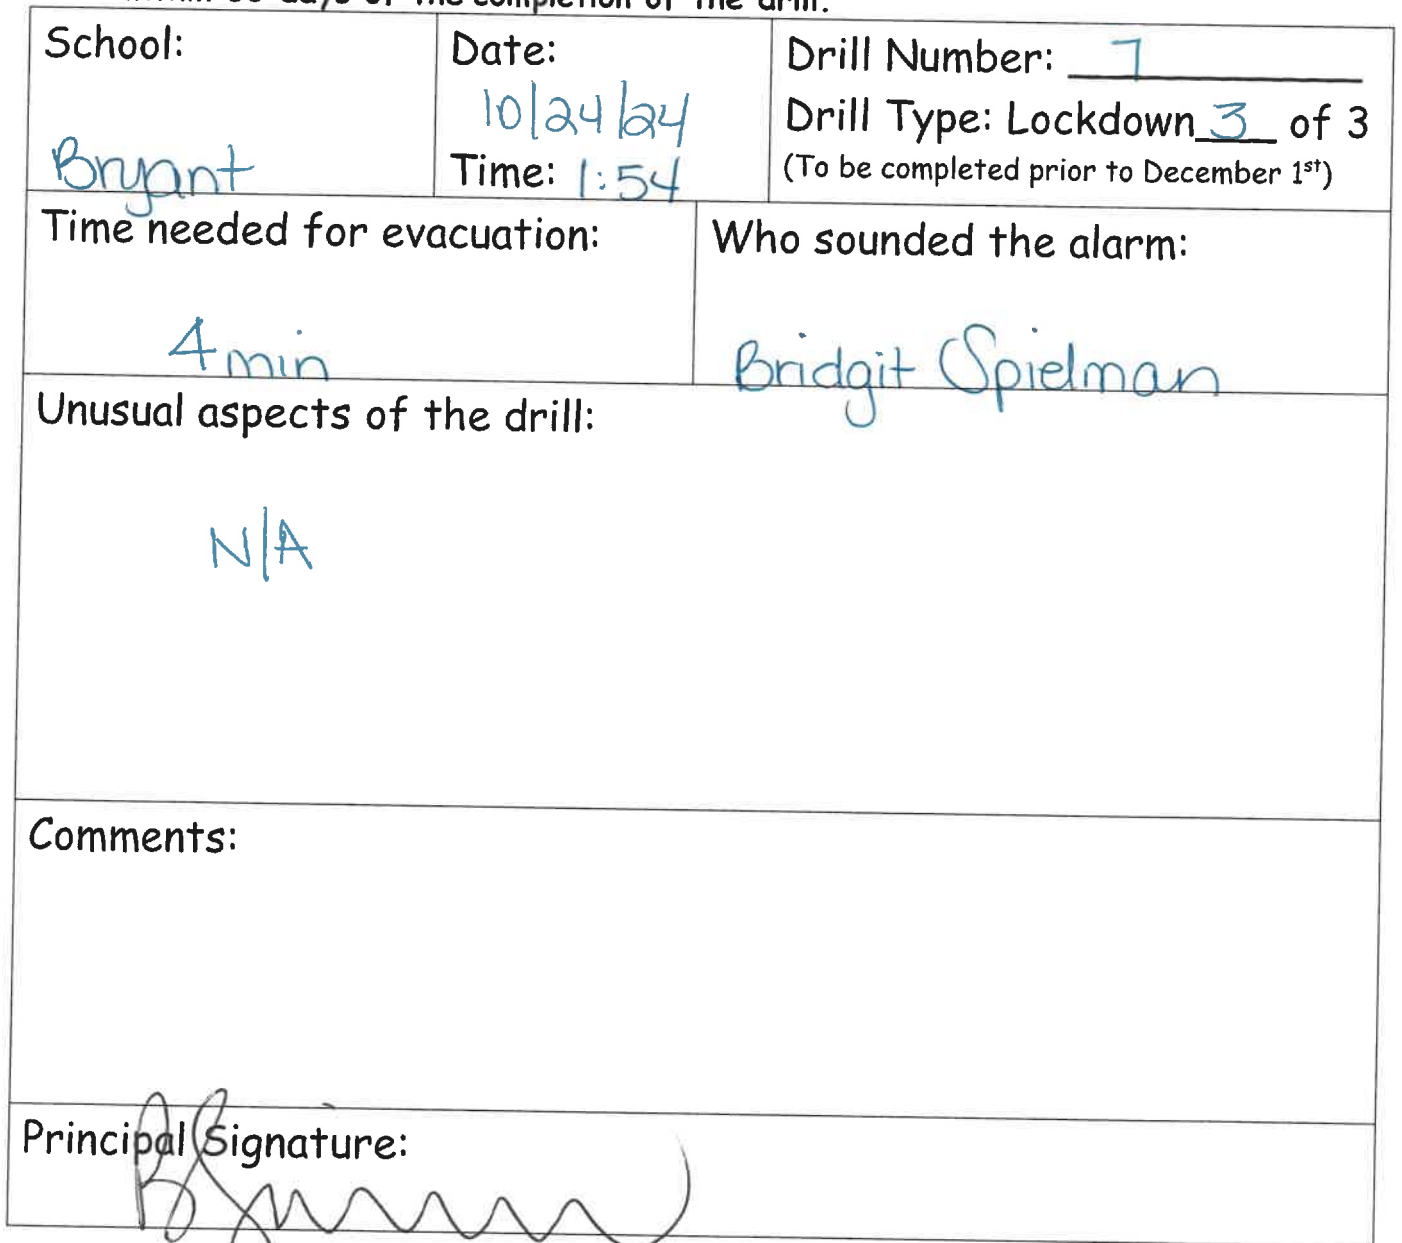 of the completion of the drill.
School:
Bryant
Date:
10/24/24
Time: 1:54
Drill Number: 7
Drill Type: Lockdown 3 of 3
(To be completed prior to December 1st)
Time needed for evacuation:
4 min
Who sounded the alarm:
Bridgit Spielman
Unusual aspects of the drill:
N/A
Comments:
Principal Signature: